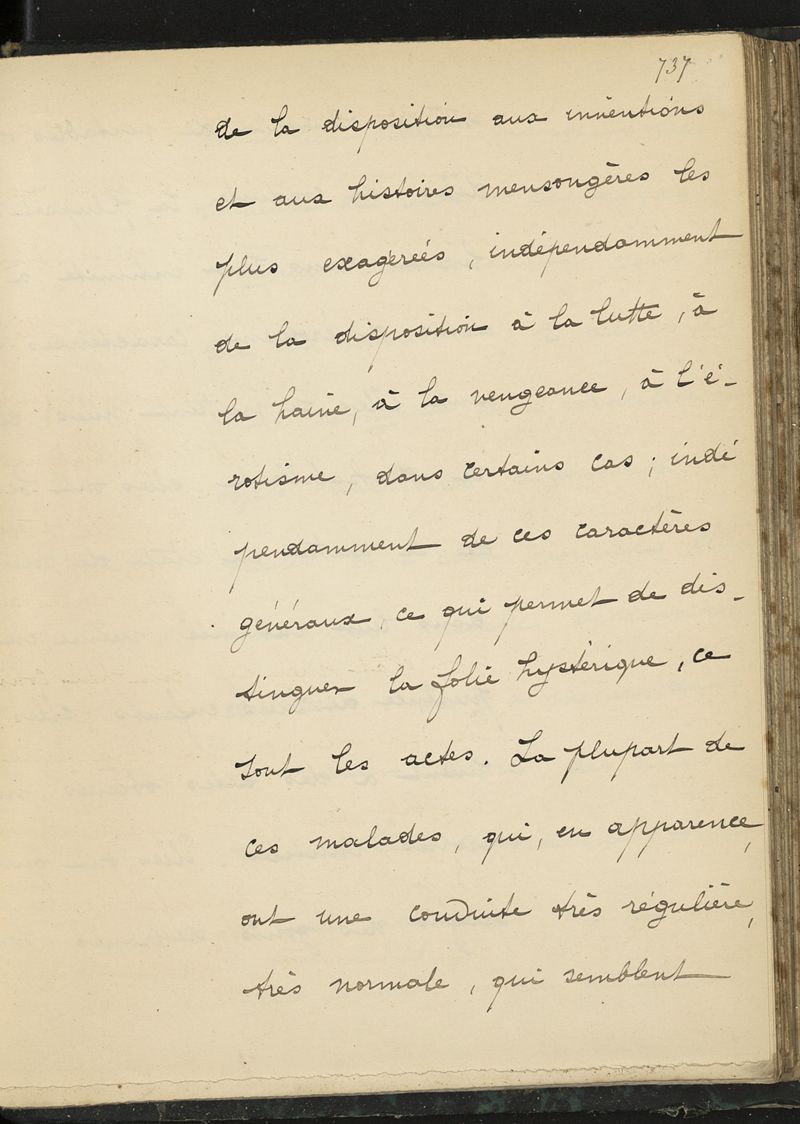 737
de la disposition aux inventions
et aux histoires mensongères les
plus exagérées, indépendamment
de la disposition à la lutte, à
la haine, à la vengeance, à l'é-
rotisme, dans certains cas ; indé
pendamment de ces caractères
généraux, ce qui permet de dis-
tinguer la folie hystérique, ce
sont les actes. La plupart de
ces malades, qui, en apparence,
ont une conduite très régulière,
très normale, qui semblent